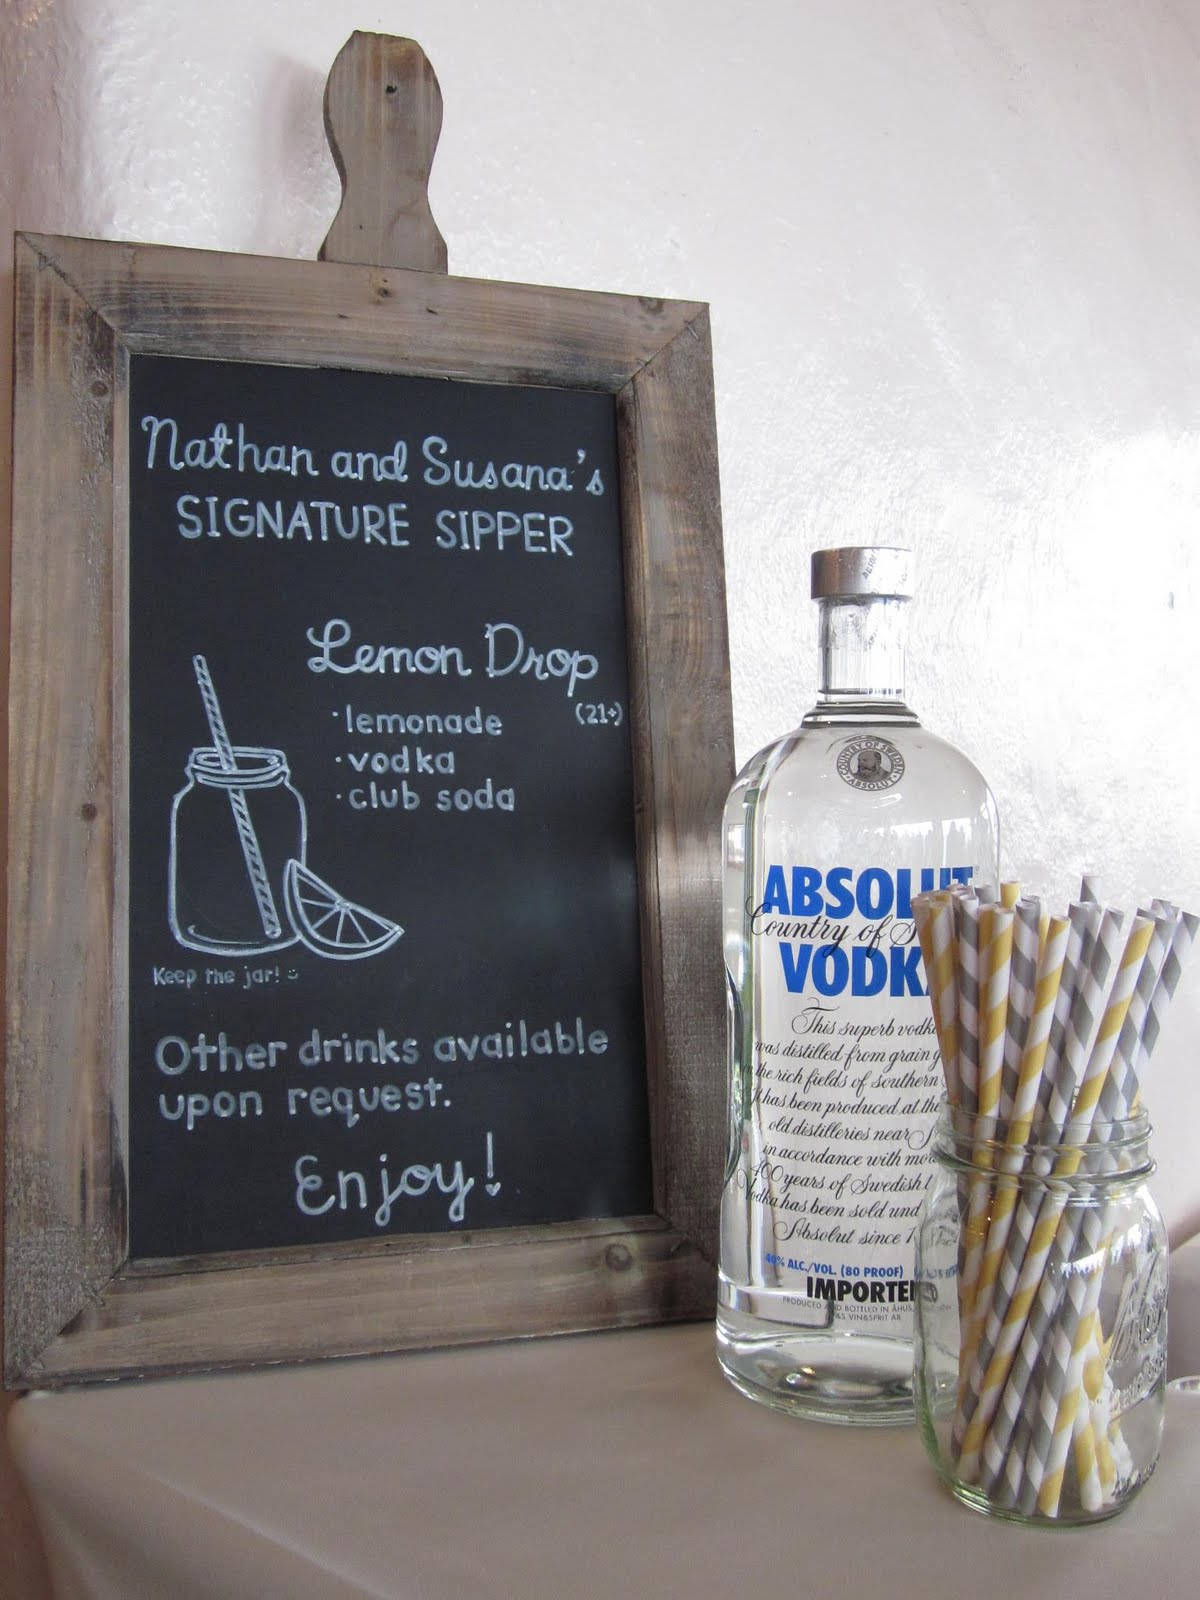 Nathan and Susana's
SIGNATURE SIPPER
Lemon Drop
(21+)
·lemonade
·vodka
·club soda
Keep the jar!
Other drinks available
upon request.
Enjoy!
COUNTRY OF SWEDEN
ABSOLUT
ABSOLUT
Country of
VODKA
This superb vodka
was distilled from grain
the rich fields of southern
It has been produced at the
old distilleries near
in accordance with more
400 years of Swedish
Vodka has been sold und
Absolut since 1
40% ALC./VOL. (80 PROOF)
IMPORTED
PRODUCED AND BOTTLED IN ÅHUS,
V&S VIN&SPRIT AB